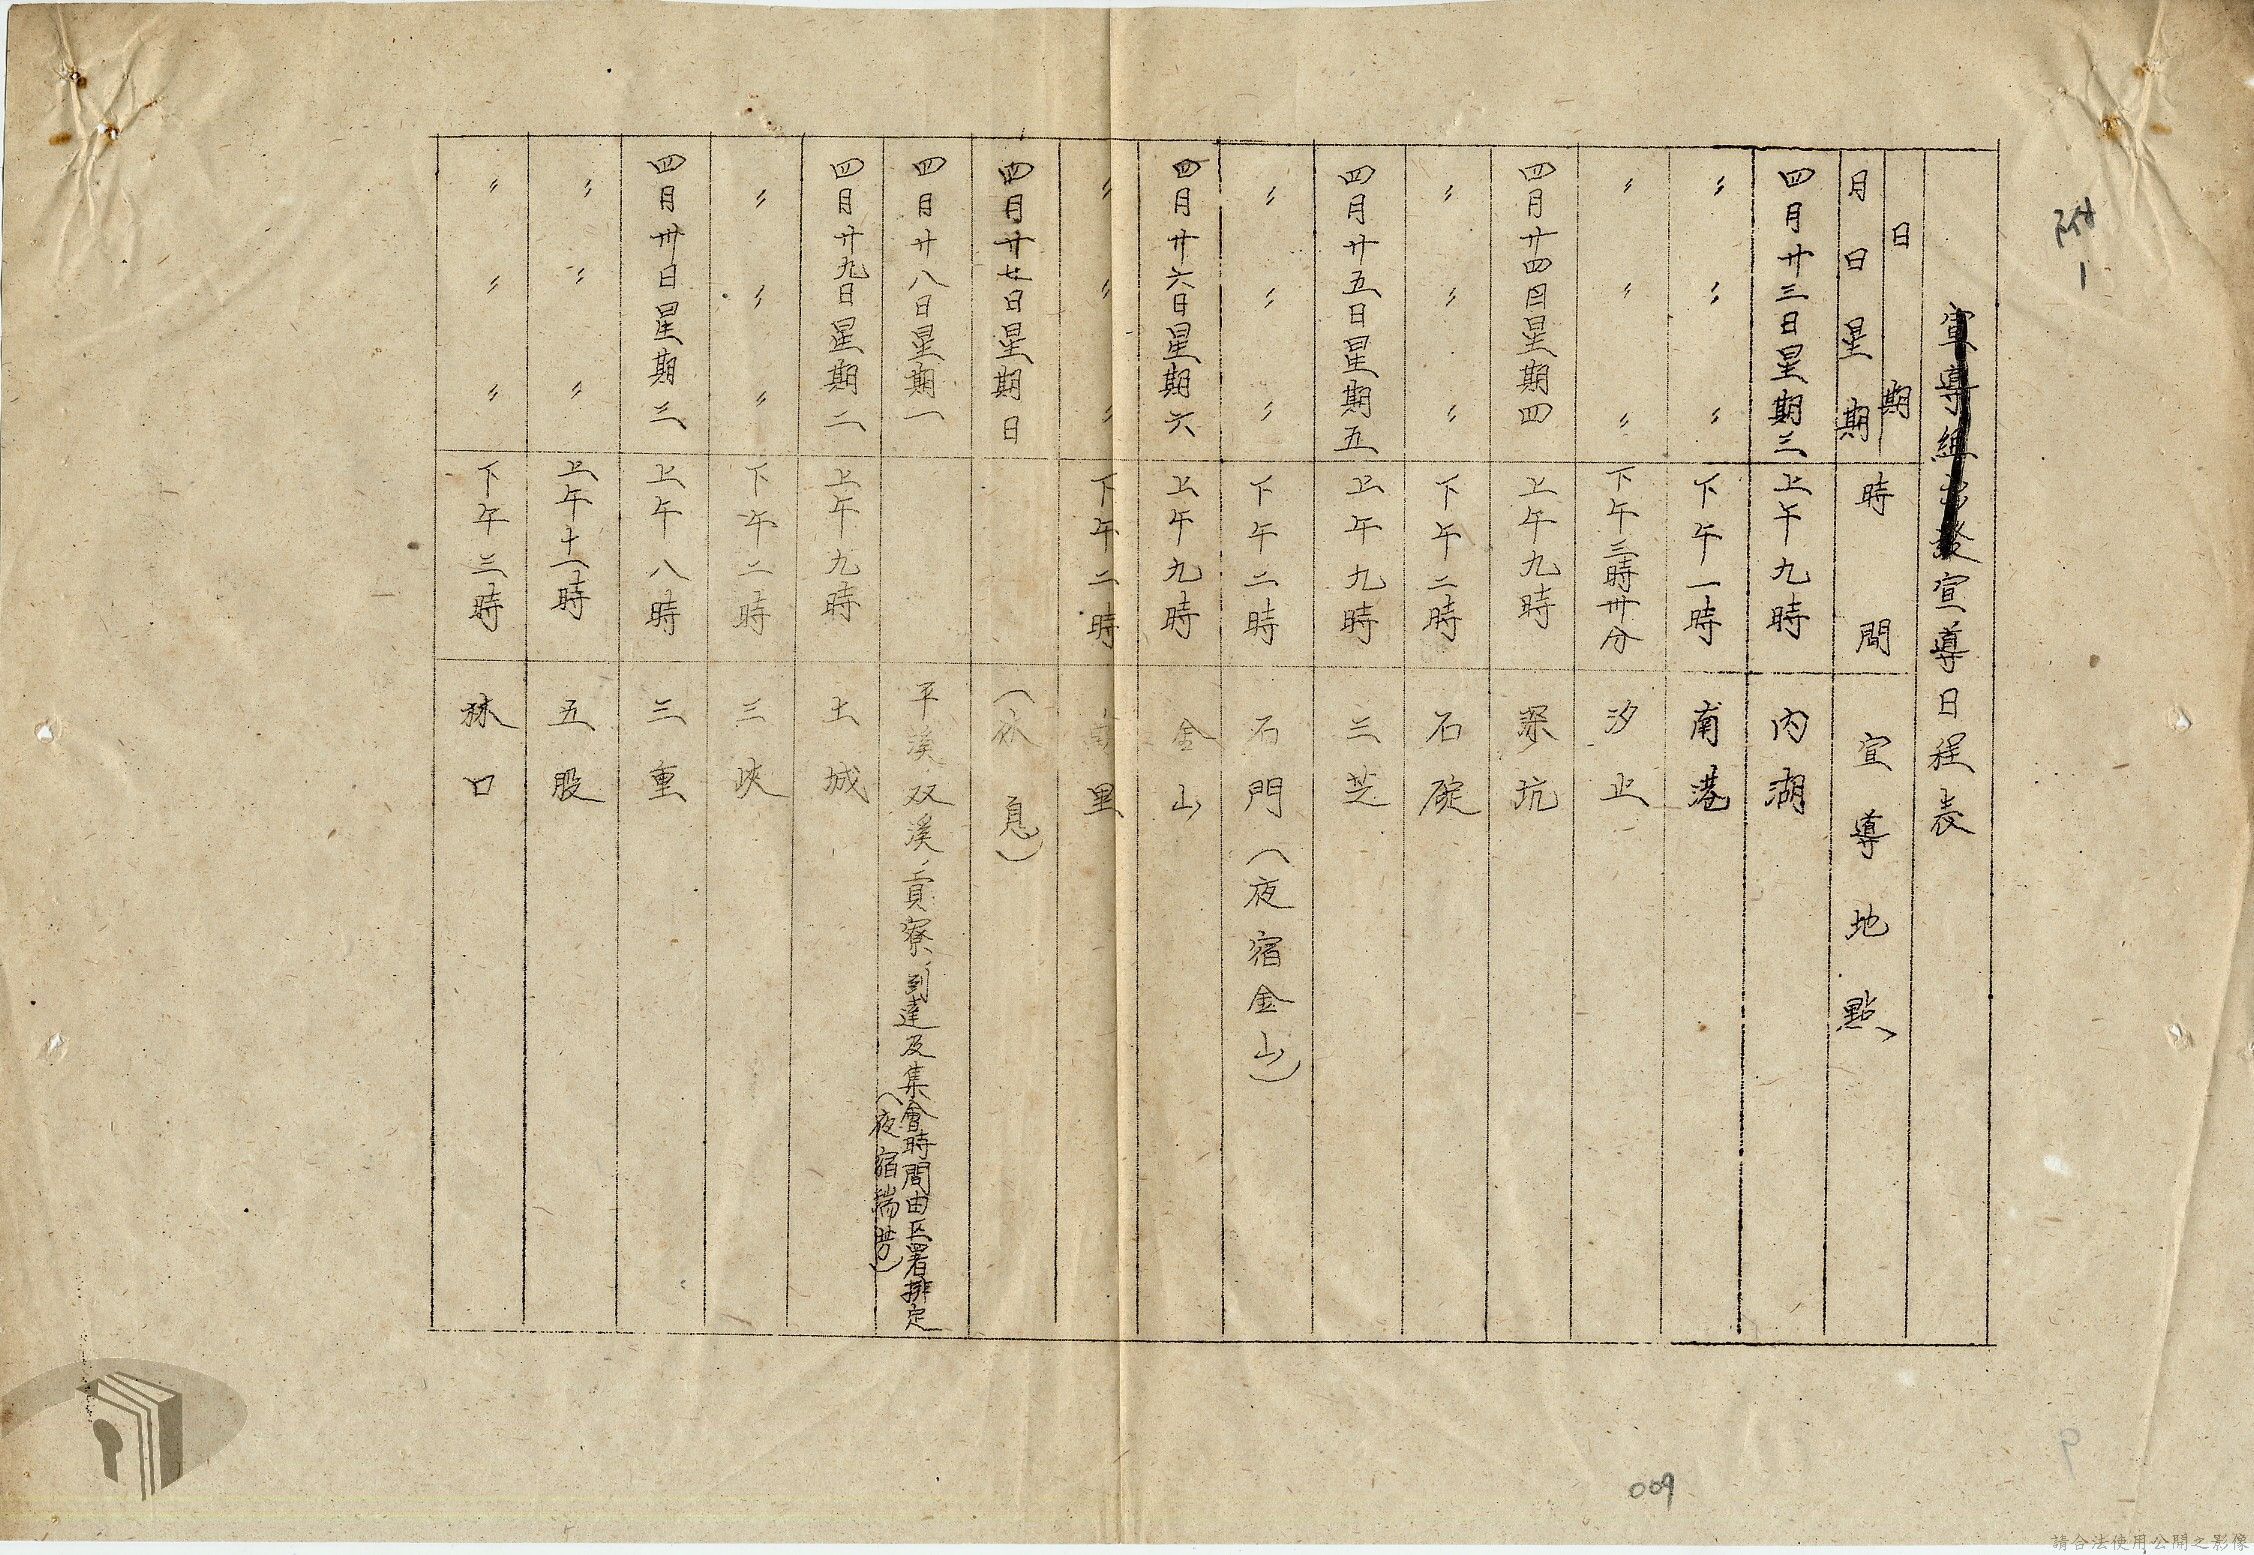 附1
宣導組出發宣導日程表
日期
月日星期 時間 宣導地點
四月廿三日星期三 上午九時 內湖
〃 〃 〃 下午一時 南港
〃 〃 〃 下午三時卅分 汐止
四月廿四日星期四 上午九時 深坑
〃 〃 〃 下午二時 石碇
四月廿五日星期五 上午九時 三芝
〃 〃 〃 下午二時 石門(夜宿金山)
四月廿六日星期六 上午九時 金山
〃 〃 〃 下午二時 萬里
四月廿七日星期日 (休息)
四月廿八日星期一 平溪、双溪、貢寮、到達及集會時間由区署排定
(夜宿瑞芳)
四月廿九日星期二 上午九時 土城
〃 〃 〃 下午二時 三峽
四月卅日星期三 上午八時 三重
〃 〃 〃 上午十一時 五股
〃 〃 〃 下午三時 林口
009
9
請合法使用公開之影像